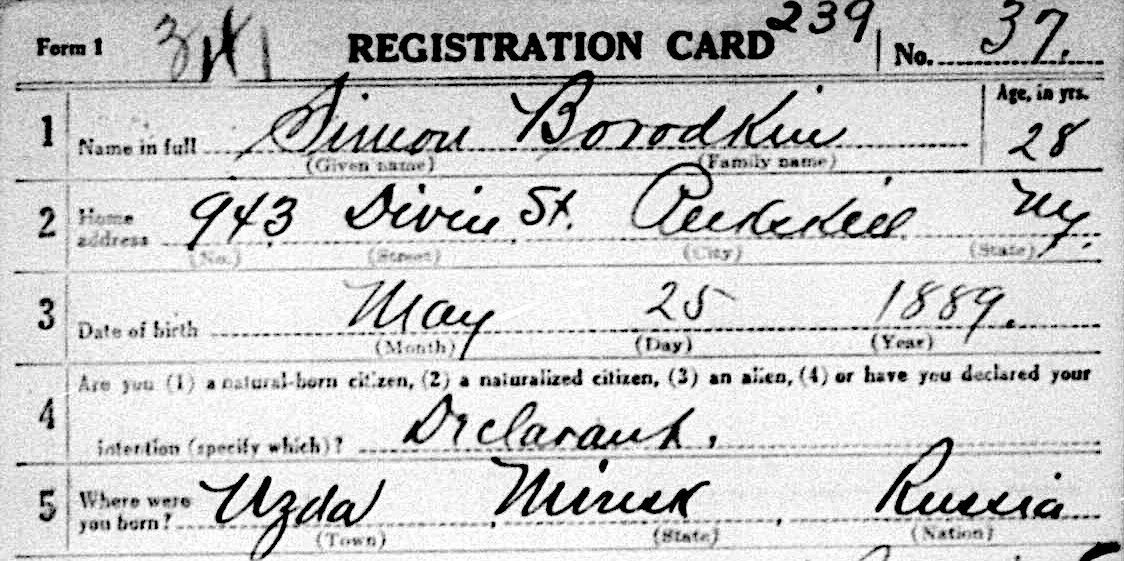 Form 1 341 REGISTRATION CARD 239 No. 37.
1 Name in full Simon Borodkin Age, in yrs. 28
(Given name) (Family name)
2 Home address 943 Divin St. Peekskill NY.
(No.) (Street) (City) (State)
3 Date of birth May 25 1889.
(Month) (Day) (Year)
4 Are you (1) a natural-born citizen, (2) a naturalized citizen, (3) an alien, (4) or have you declared your
intention (specify which)? Declarant.
5 Where were you born? Uzda Minsk Russia
(Town) (State) (Nation)